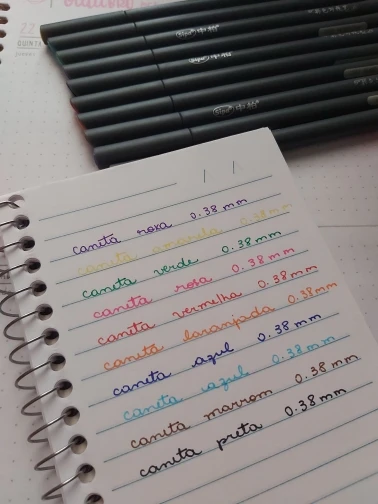 22
QUINTA
/ /
caneta roxa 0.38 mm
caneta amarela 0.38 mm
caneta verde 0.38 mm
caneta rosa 0.38 mm
caneta vermelha 0.38 mm
caneta laranjada 0.38 mm
caneta azul 0.38 mm
caneta azul 0.38 mm
caneta marrom 0.38 mm
caneta preta 0.38 mm